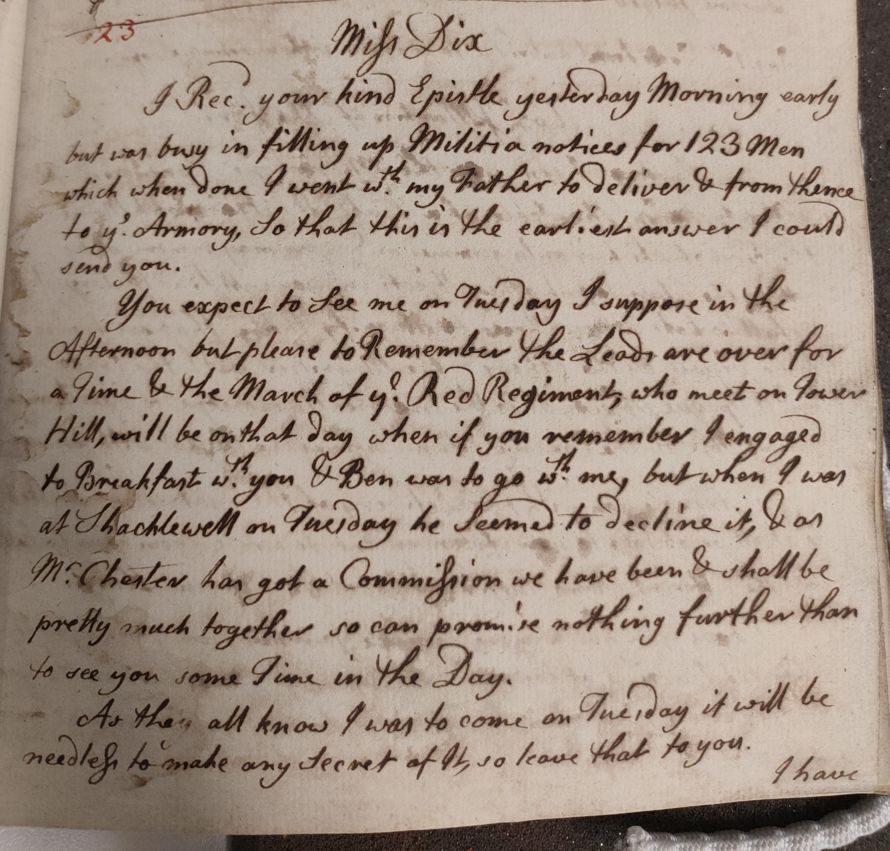 23
Miss Dix
I Rec.d your kind Epistle yesterday Morning early
but was busy in filling up Militia notices for 123 Men
which when done I went wth. my Father to deliver & from thence
to ye. Armory, So that this is the earliest answer I could
send you.
You expect to See me on Tuesday I suppose in the
Afternoon but please to Remember the Leads are over for
a Time & the March of ye. Red Regiment, who meet on Tower
Hill, will be on that day when if you remember I engaged
to Breakfast wth. you & Ben was to go wth. me, but when I was
at Shacklewell on Tuesday he Seemed to decline it, & as
Mr. Chester has got a Commission we have been & shall be
pretty much together so can promise nothing further than
to see you some Time in the Day.
As they all know I was to come on Tuesday it will be
needless to make any Secret of It, so leave that to you.
I have